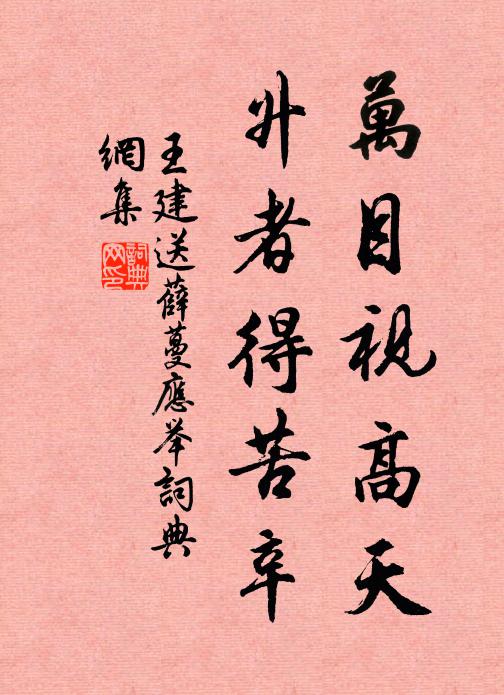 萬目視高天
升者得苦辛
王建送薛蔓應举詞典
網集
詞典
网印